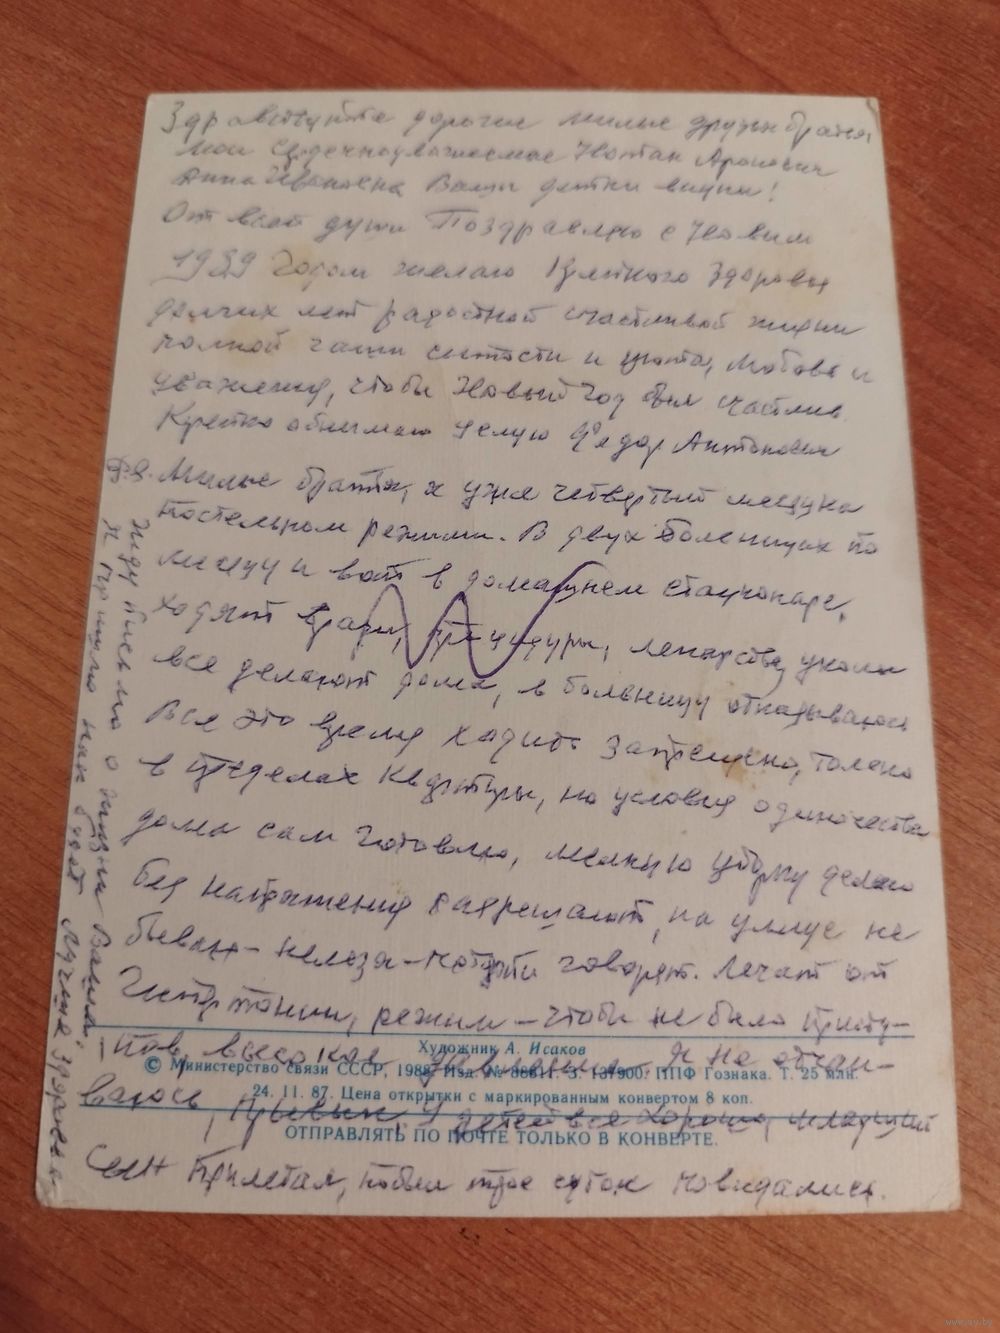 Здравствуйте дорогие милые друзья братья
мои Сердечноуважаемые Натан Аронович
Анна Ивановна Ваши детки внуки!
От всей души Поздравляю с Новым
1989 Годом желаю Крепкого Здоровья
долгих лет радостной счастливой жизни
полной чаши сытости и уюта, любови и
уважения, чтобы Новый Год был счастлив.
Крепко обнимаю целую Фёдор Антонович
Милые братья, я уже четвертый месяц на
постельном режиме. В двух больницах по
месяцу и вот в домашнем стационаре.
Ходят врачи, процедуры, лекарства, уколы
все делают дома, в больницу отказываюсь
Все это время ходить запрещено, только
в пределах квартиры, но условия одиночества
дома сам готовлю, мелкую уборку делаю
без напряжения разрешают, на улице не
бываю - нельзя - говорят. Лечат от
Гипертонии, режим - чтобы не было присту-
пов, высокая давления. Я не отчаи-
ваюсь, привык, У детей все хорошо, младший
сын Прилетал, побыл трое суток повидались.
Жду письмо о жизни Вашей,
Я пришлю как будет лучше здоровья
Художник А. Исаков
© Министерство связи СССР, 1988. Изд. № З. 137900. ППФ Гознака. Т. 25 млн.
24. 11. 87. Цена открытки с маркированным конвертом 8 коп.
ОТПРАВЛЯТЬ ПО ПОЧТЕ ТОЛЬКО В КОНВЕРТЕ.
www.ay.by